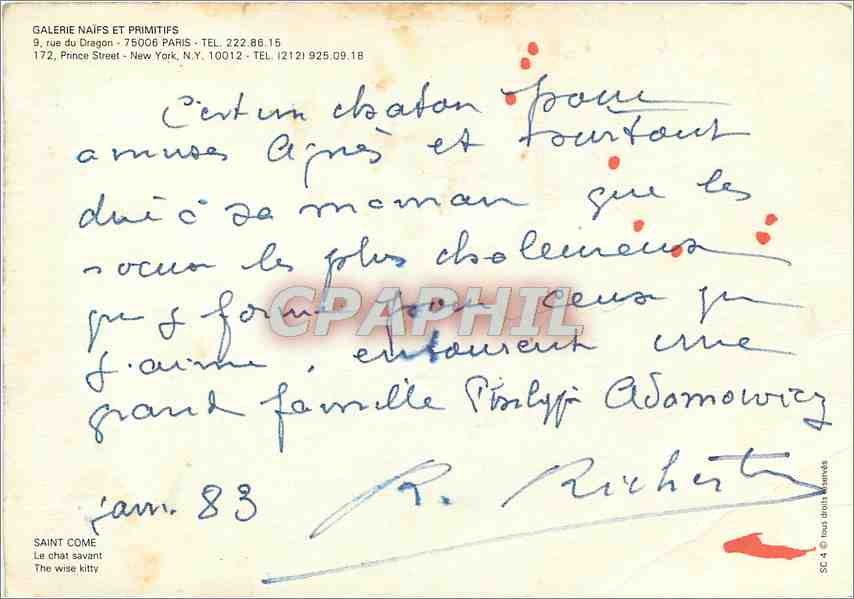 GALERIE NAÏFS ET PRIMITIFS
9, rue du Dragon - 75006 PARIS - TEL. 222.86.15
172, Prince Street - New York, N.Y. 10012 - TEL. (212) 925.09.18
C'est un chaton pour
amuser Agnès et surtout
dire à sa maman que les
voeux les plus chaleureux
que je forme pour ceux que
j'aime, entourent une
grande famille Philippe Adamowicz
janv. 83 R. Richert
SAINT COME
Le chat savant
The wise kitty
SC 4 © tous droits réservés
CPAPHIL